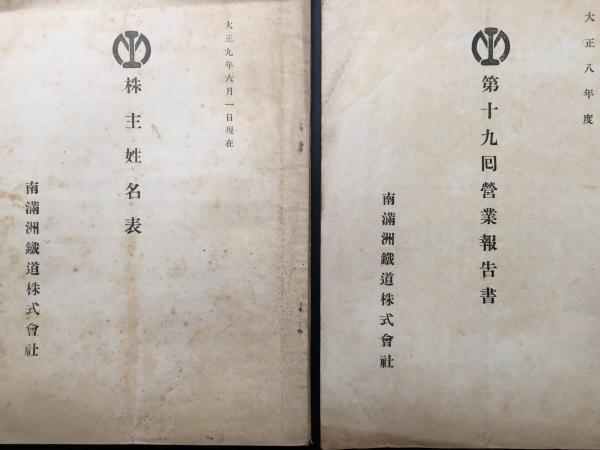 大正九年六月一日現在
株主姓名表
南滿洲鐵道株式會社
大正八年度
第十九回營業報告書
南滿洲鐵道株式會社